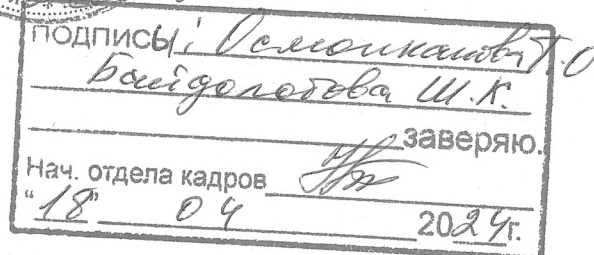 ПОДПИСЫ: Осмонканова Т.О
Байдолотова Ш.К.
заверяю.
Нач. отдела кадров
"18" 04 2024г.